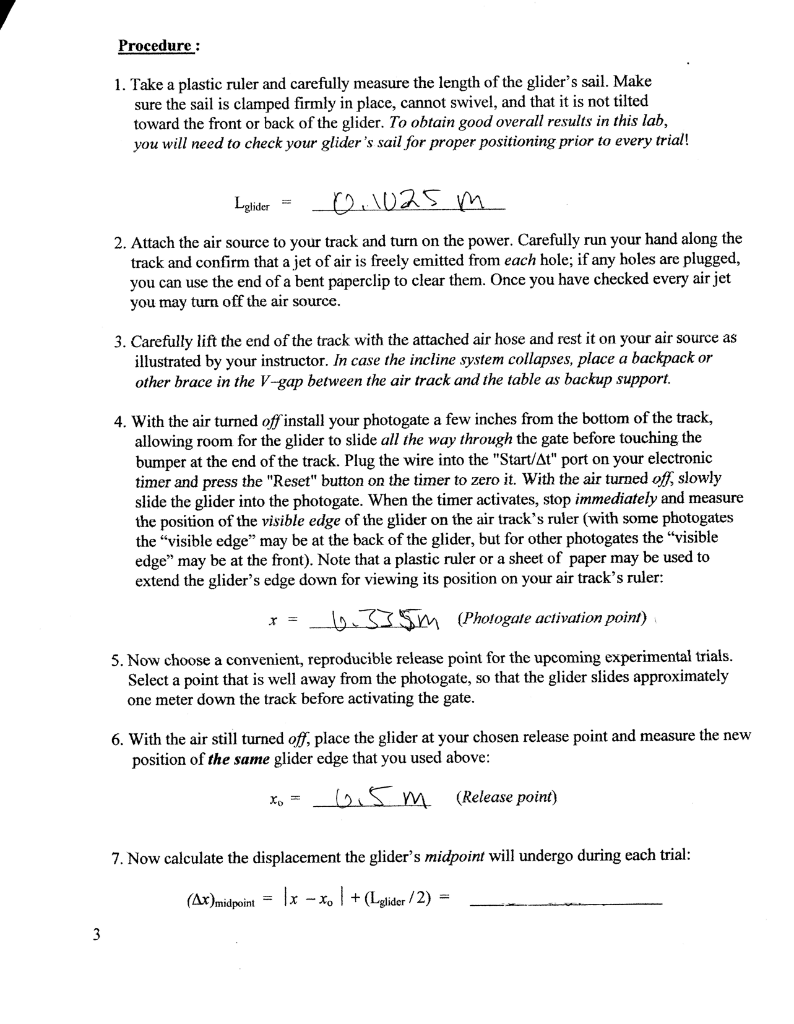 Procedure :
1. Take a plastic ruler and carefully measure the length of the glider's sail. Make
sure the sail is clamped firmly in place, cannot swivel, and that it is not tilted
toward the front or back of the glider. To obtain good overall results in this lab,
you will need to check your glider's sail for proper positioning prior to every trial!
Lglider = 0.1025 m
2. Attach the air source to your track and turn on the power. Carefully run your hand along the
track and confirm that a jet of air is freely emitted from each hole; if any holes are plugged,
you can use the end of a bent paperclip to clear them. Once you have checked every air jet
you may turn off the air source.
3. Carefully lift the end of the track with the attached air hose and rest it on your air source as
illustrated by your instructor. In case the incline system collapses, place a backpack or
other brace in the V-gap between the air track and the table as backup support.
4. With the air turned off install your photogate a few inches from the bottom of the track,
allowing room for the glider to slide all the way through the gate before touching the
bumper at the end of the track. Plug the wire into the "Start/Δt" port on your electronic
timer and press the "Reset" button on the timer to zero it. With the air turned off, slowly
slide the glider into the photogate. When the timer activates, stop immediately and measure
the position of the visible edge of the glider on the air track's ruler (with some photogates
the “visible edge” may be at the back of the glider, but for other photogates the “visible
edge” may be at the front). Note that a plastic ruler or a sheet of paper may be used to
extend the glider's edge down for viewing its position on your air track's ruler:
x = 0.335m (Photogate activation point)
5. Now choose a convenient, reproducible release point for the upcoming experimental trials.
Select a point that is well away from the photogate, so that the glider slides approximately
one meter down the track before activating the gate.
6. With the air still turned off, place the glider at your chosen release point and measure the new
position of the same glider edge that you used above:
xo = 0.5 m (Release point)
7. Now calculate the displacement the glider's midpoint will undergo during each trial:
(Δx)midpoint = |x − xo| + (Lglider / 2) =
3